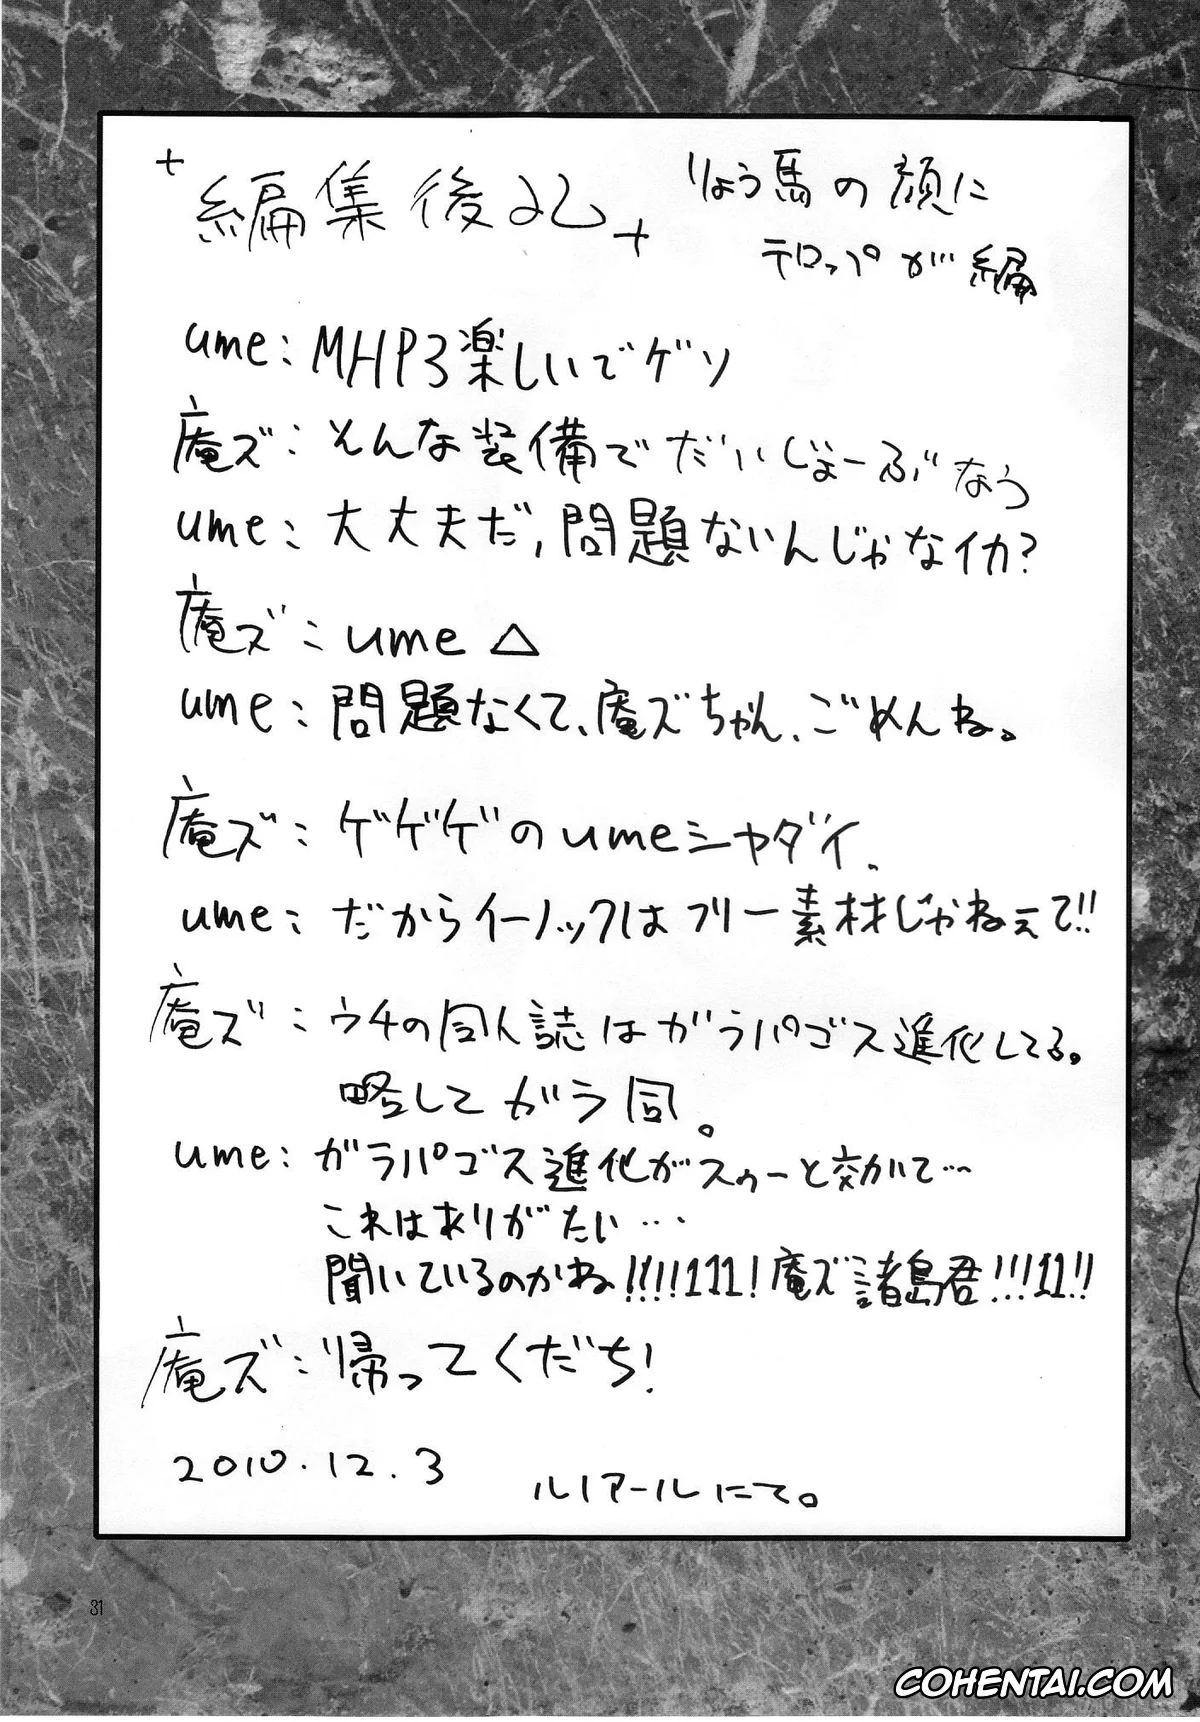 +編集後記+
りょう馬の顔に
テロップが編
ume:MHP3楽しいでゲソ
庵ズ:そんな装備でだいじょーぶなう
ume:大丈夫だ,問題ないんじゃなイカ?
庵ズ:ume△
ume:問題なくて、庵ズちゃん、ごめんね。
庵ズ:ゲゲゲのumeシャダイ、
ume:だからイーノックはフリー素材じゃねぇて!!
庵ズ:ウチの同人誌はガラパゴス進化してる。
略してガラ同。
ume:ガラパゴス進化がスゥーと効いて…
これはありがたい…
聞いているのかね!!!!111!庵ズ諸島君!!!11!!
庵ズ:帰ってくだち!
2010.12.3
ルノアールにて。
31
COHENTAI.COM